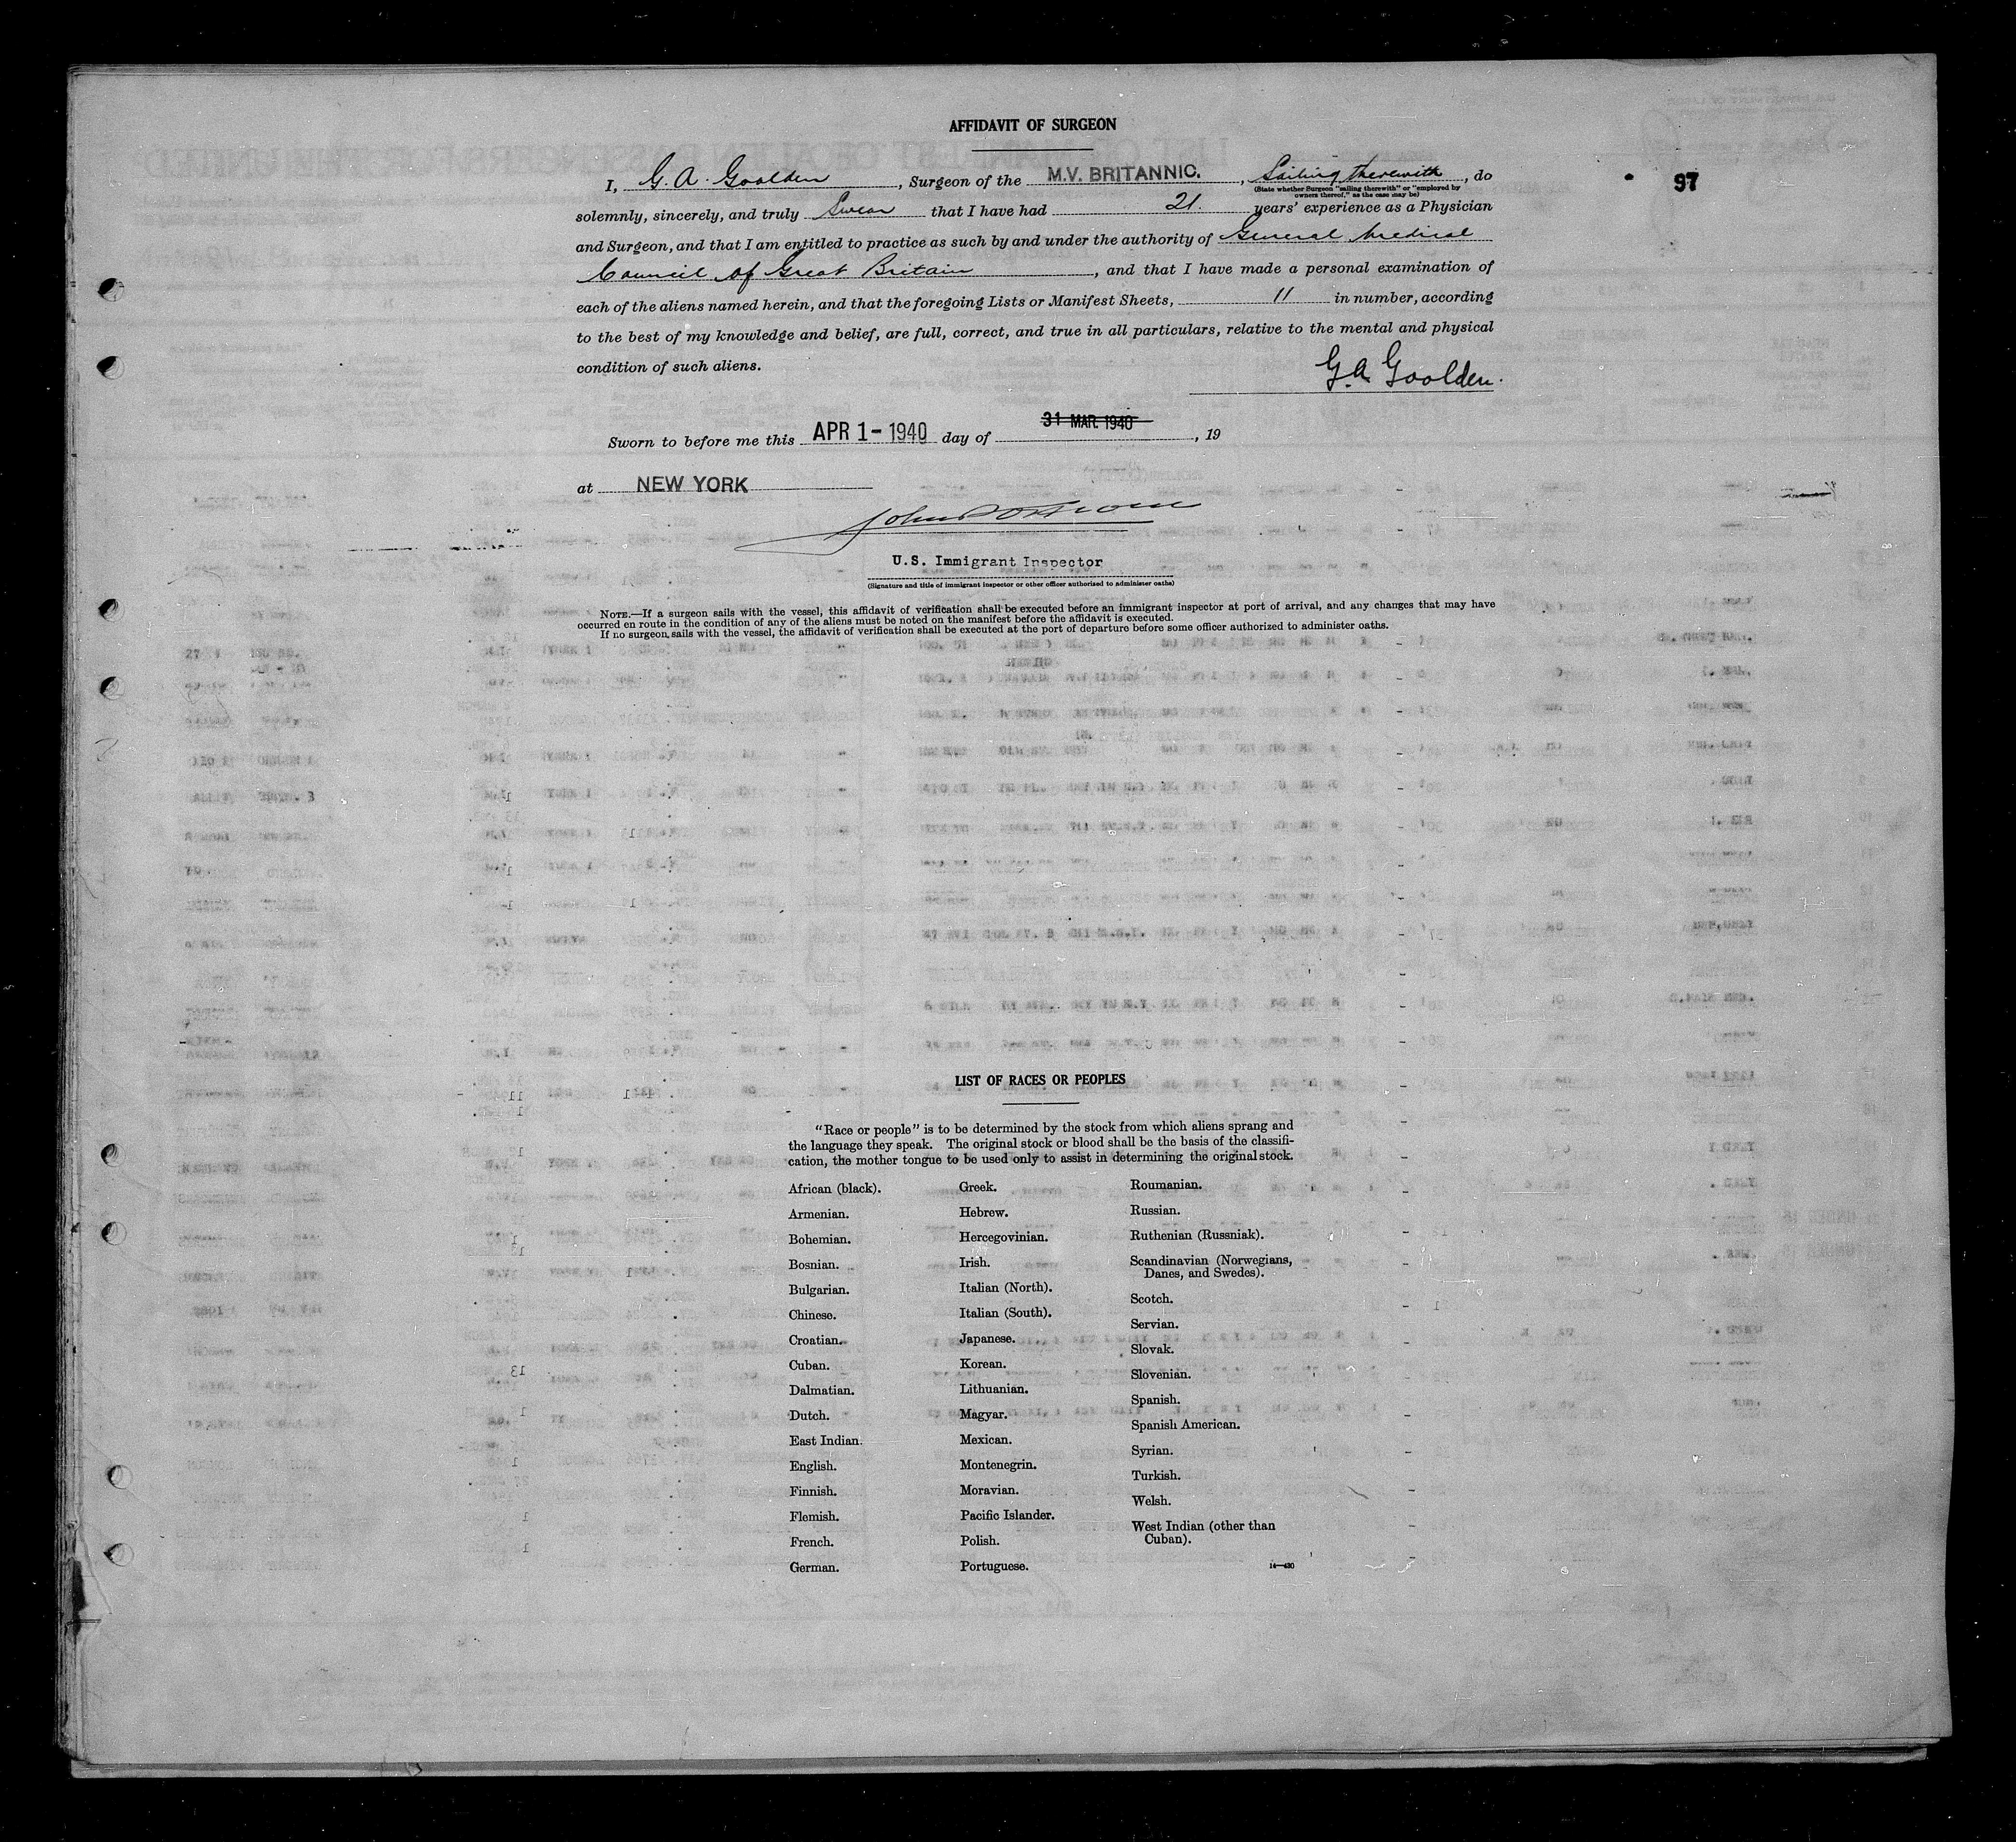 AFFIDAVIT OF SURGEON
97
I, G. A. Goolden, Surgeon of the M.V. BRITANNIC., Sailing therewith, do
(State whether Surgeon "sailing therewith" or "employed by
owners thereof," as the case may be)
solemnly, sincerely, and truly Swear that I have had 21. years' experience as a Physician
and Surgeon, and that I am entitled to practice as such by and under the authority of General Medical
Council of Great Britain, and that I have made a personal examination of
each of the aliens named herein, and that the foregoing Lists or Manifest Sheets, 11 in number, according
to the best of my knowledge and belief, are full, correct, and true in all particulars, relative to the mental and physical
condition of such aliens.
G. A. Goolden.
Sworn to before me this APR 1 - 1940 day of 31 MAR. 1940, 19
at NEW YORK
U.S. Immigrant Inspector
(Signature and title of immigrant inspector or other officer authorized to administer oaths)
NOTE.—If a surgeon sails with the vessel, this affidavit of verification shall be executed before an immigrant inspector at port of arrival, and any changes that may have
occurred en route in the condition of any of the aliens must be noted on the manifest before the affidavit is executed.
If no surgeon sails with the vessel, the affidavit of verification shall be executed at the port of departure before some officer authorized to administer oaths.
LIST OF RACES OR PEOPLES
"Race or people" is to be determined by the stock from which aliens sprang and
the language they speak. The original stock or blood shall be the basis of the classifi-
cation, the mother tongue to be used only to assist in determining the original stock.
African (black).
Armenian.
Bohemian.
Bosnian.
Bulgarian.
Chinese.
Croatian.
Cuban.
Dalmatian.
Dutch.
East Indian.
English.
Finnish.
Flemish.
French.
German.
Greek.
Hebrew.
Hercegovinian.
Irish.
Italian (North).
Italian (South).
Japanese.
Korean.
Lithuanian.
Magyar.
Mexican.
Montenegrin.
Moravian.
Pacific Islander.
Polish.
Portuguese.
Roumanian.
Russian.
Ruthenian (Russniak).
Scandinavian (Norwegians,
Danes, and Swedes).
Scotch.
Servian.
Slovak.
Slovenian.
Spanish.
Spanish American.
Syrian.
Turkish.
Welsh.
West Indian (other than
Cuban).
14—430